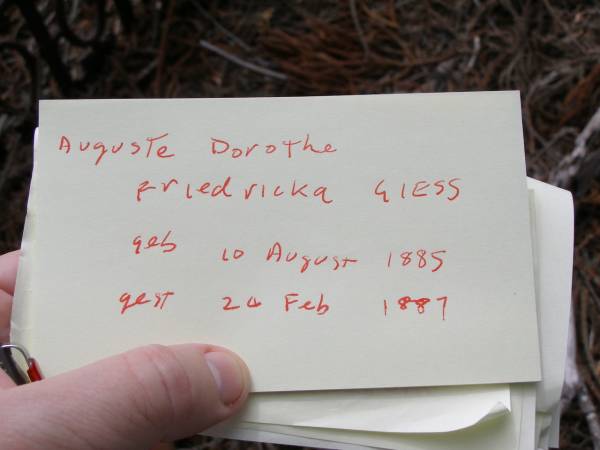 Auguste Dorothe
Friedricka GIESS
geb 10 August 1885
gest 24 Feb 1887